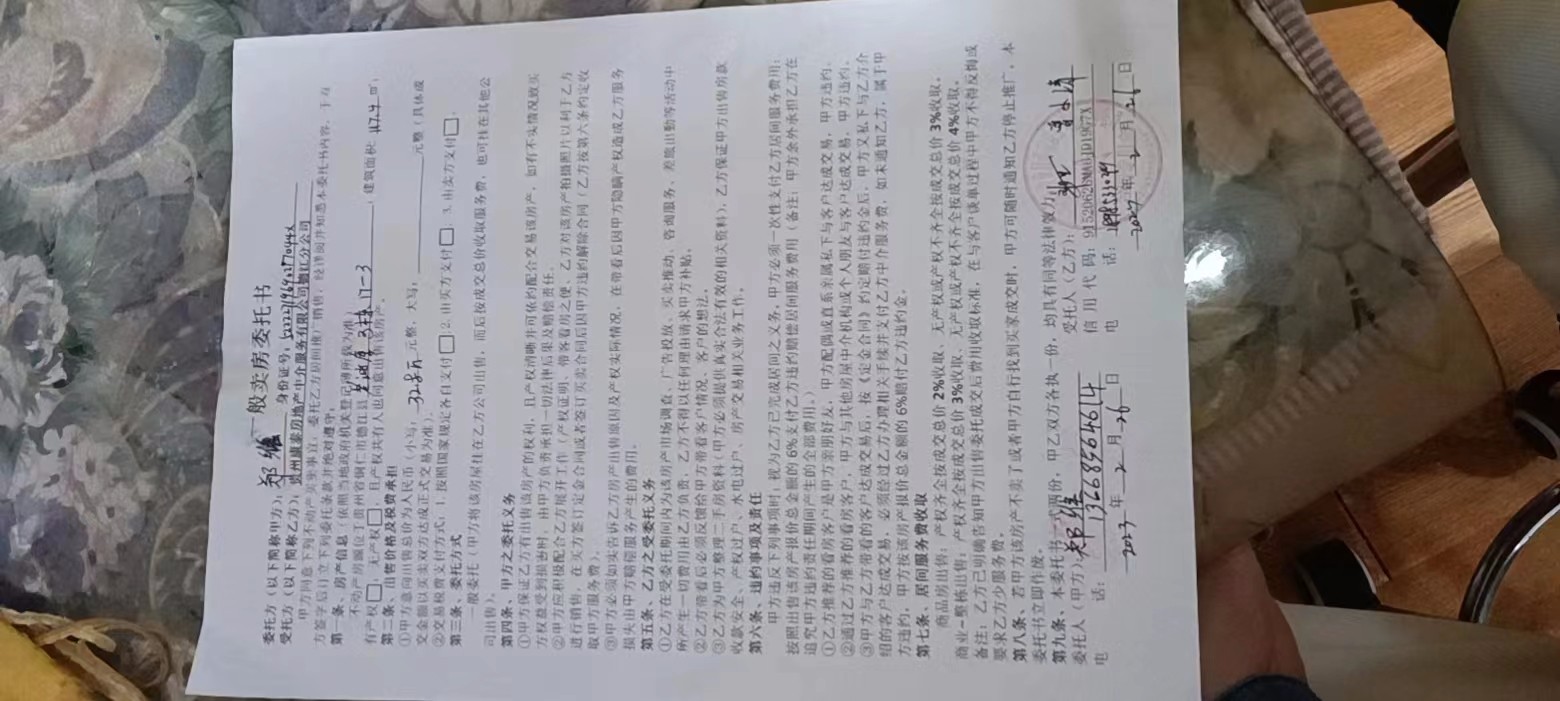 一般卖房委托书
委托方（以下简称甲方）：郑维 身份证号：
受托方（以下简称乙方）：贵州康泰房地产中介服务有限公司德江分公司
甲方同意下列不动产买卖事宜，委托乙方居间推广销售；经详阅并知悉本委托书内容，于双
方签字后订立下列委托条款并绝对遵守。
第一条、房产信息（依照当地政府机关登记簿所载为准）
不动产房源位于贵州省铜仁市德江县 3栋11-3 ；建筑面积：117.4 ㎡；
有产权□、无产权□，且产权共有人出同意出售该房产。
第二条、出售价格及税费承担
①甲方意向出售总价为人民币（小写：32.8万 元整，大写： 元整（具体成
交金额以买卖双方达成正式交易为准）。
②交易税费支付方式：1、按照国家规定各自支付□ 2、由买方支付□ 3、由卖方支付□。
第三条、委托方式
一般委托（甲方将该房屋挂在乙方公司出售，而后按成交总价收取服务费，也可挂在其他公
司出售）。
第四条、甲方之委托义务
①甲方保证乙方有出售该房产的权利，且产权清晰并可依约配合交易该房产，如有不实情况致买
方权益受到损害时，由甲方负责承担一切法律后果及赔偿责任。
②甲方应积极配合乙方展开工作（产权证明、带客看房之便，乙方对该房产拍摄照片以利于乙方
进行销售，在买方签订定金合同或者签订买卖合同后因甲方违约解除合同（乙方按第六条约定收
取甲方服务费）。
③甲方必须如实告诉乙方房产出售原因及产权实际情况，在带看后因甲方隐瞒产权造成乙方服务
损失由甲方赔赔服务产生的费用。
第五条、乙方之受委托义务
①乙方在受委托期间内为该房产市场调查、广告投放、买卖推动、咨询服务、差旅出勤等活动中
所产生一切费用由乙方负责，乙方不得以任何理由请求甲方补贴。
②乙方带看后必须反馈给甲方带看客户情况、客户的想法。
③乙方为甲方整理二手房资料（甲方必须提供真实合法有效的相关资料），乙方保证甲方出售房款
收款安全、产权过户、水电过户、房产交易相关业务工作。
第六条、违约事项及责任
甲方违反下列事项时，视为乙方已完成居间之义务，甲方必须一次性支付乙方居间服务费用；
按照出售该房产报价总金额的6%支付乙方违约赔偿居间服务费用（备注：甲方余外承担乙方在
追究甲方违约责任期间产生的全部费用。）
①乙方推荐的看房客户是甲方亲朋好友，甲方配偶或直系亲属私下与客户达成交易，甲方违约。
②通过乙方推荐的看房客户，甲方与其他房屋中介机构或个人朋友与客户达成交易，甲方违约。
③甲方与乙方带看的客户达成交易后，按《定金合同》约定赔付违约金后，甲方又私下与乙方介
绍的客户达成交易，必须经过乙方办理相关手续并支付乙方中介服务费，如未通知乙方，属于甲
方违约，甲方按该房产报价总金额的6%赔付乙方违约金。
第七条、居间服务费收取
商品房出售：产权齐全按成交总价 2%收取、无产权或产权不齐全按成交总价 3%收取。
商业-整栋出售：产权齐全按成交总价 3%收取、无产权或产权不齐全按成交总价 4%收取。
备注：乙方已明确告知甲方出售委托成交后费用收取标准，在与客户谈单过程中甲方不得反悔或
要求乙方少服务费。
第八条、若甲方该房产不卖了或者甲方自行找到买家成交时，甲方可随时通知乙方停止推广，本
委托书立即作废。
第九条、本委托书一式两份，甲乙双方各执一份，均具有同等法律效力。
委托人（甲方）：郑维 受托人（乙方）：
信用代码：91520626MA0JD19C7X
电 话：13668564614 电 话：
2023年2月26日 年2月26日